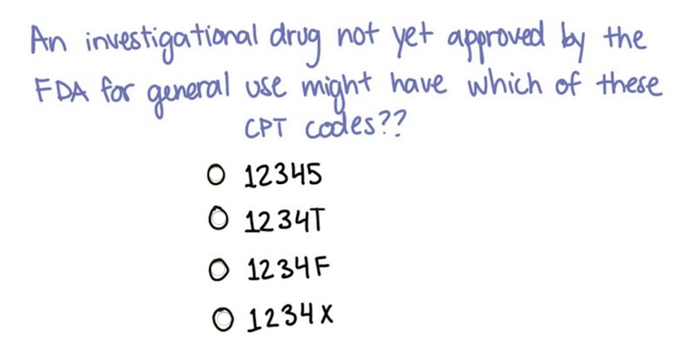 An investigational drug not yet approved by the
FDA for general use might have which of these
CPT codes??
12345
1234T
1234F
1234X